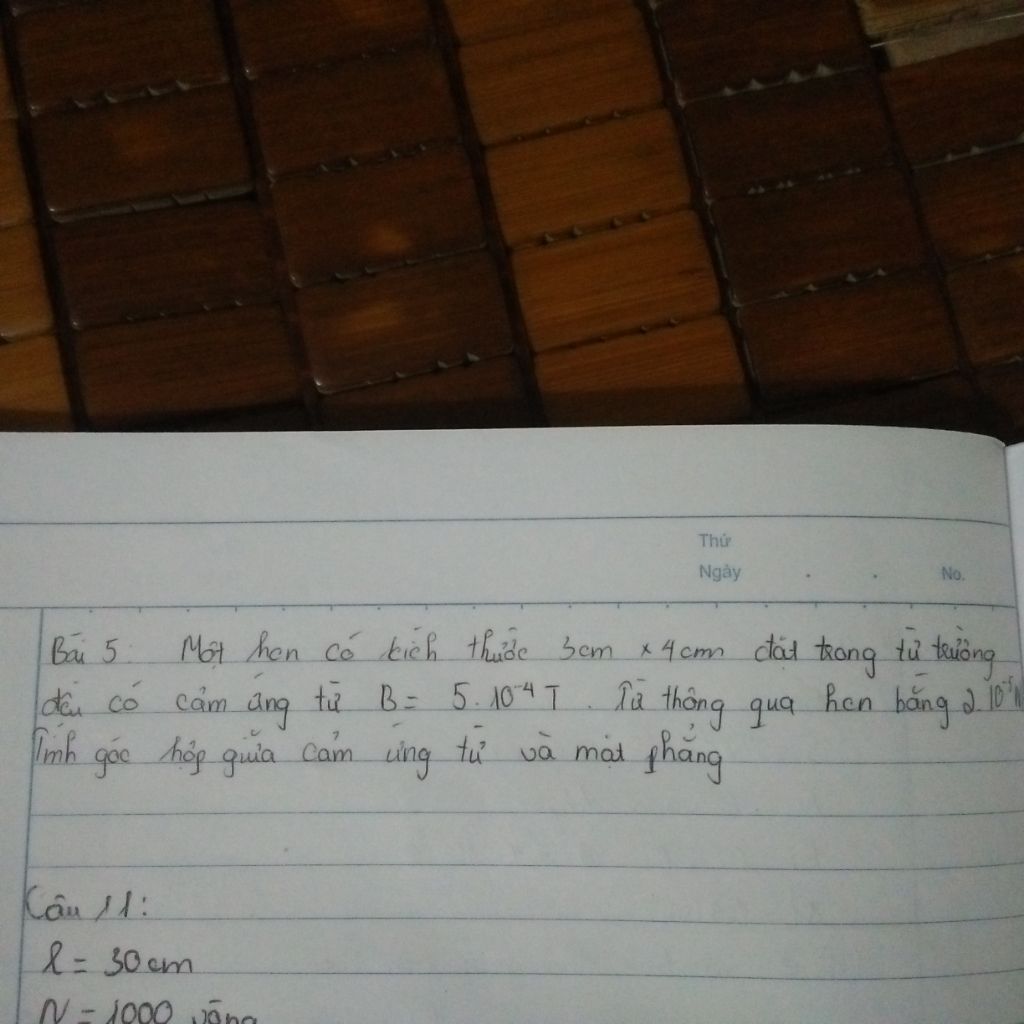 Thứ
Ngày . . No.
Bài 5: Một hcn có kích thước 3cm × 4cm đặt trong từ trường
đều có cảm ứng từ B = 5.10⁻⁴ T. Từ thông qua hcn bằng 2.10⁻⁵
Tính góc hợp giữa cảm ứng từ và mặt phẳng
Câu 11:
l = 30cm
N = 1000 vòng